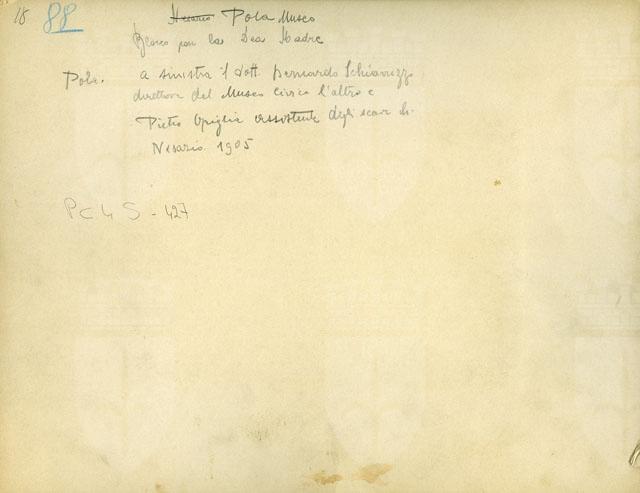 18 88 Nesazio Pola Museo
Blocco con la Dea Madre
Pola. a sinistra il dott. Bernardo Schiavuzzi
direttore del Museo civico l'altro e
Pietro Opiglia assistente degli scavi di
Nesazio 1905
PC4S-427